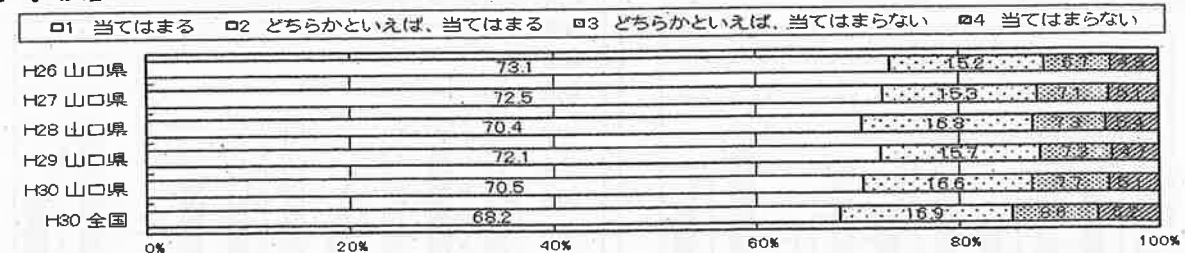 1 当てはまる 2 どちらかといえば、当てはまる 3 どちらかといえば、当てはまらない 4 当てはまらない
H26 山口県 73.1 15.2
H27 山口県 72.5 15.3 7.1
H28 山口県 70.4 16.8 7.3 5.4
H29 山口県 72.1 15.7 7.3
H30 山口県 70.5 16.6 7.7
H30 全国 68.2 16.9 8.6 6.2
0% 20% 40% 60% 80% 100%